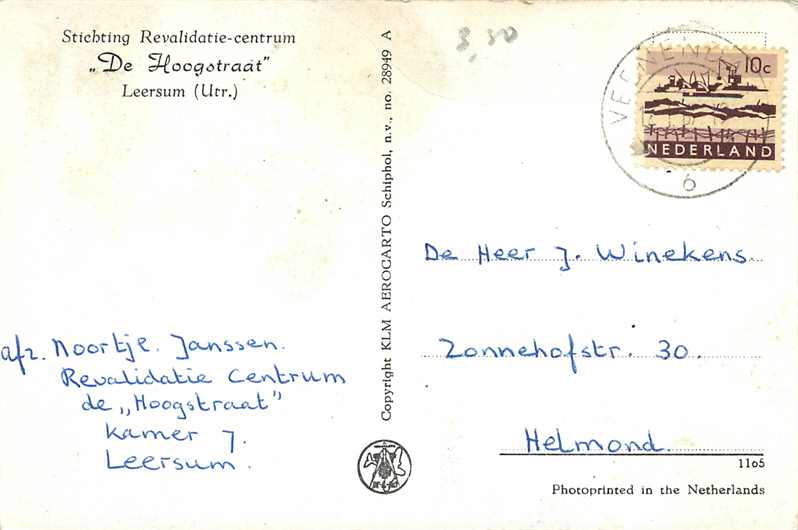 Stichting Revalidatie-centrum
„De Hoogstraat"
Leersum (Utr.)
3,50
10c
NEDERLAND
6
Copyright KLM AEROCARTO Schiphol, n.v., no. 28949 A
De Heer J. Winekens.
Zonnehofstr. 30.
Helmond.
afz. Noortje. Janssen.
Revalidatie Centrum
de „Hoogstraat"
Kamer 7.
Leersum.
1105
Photoprinted in the Netherlands